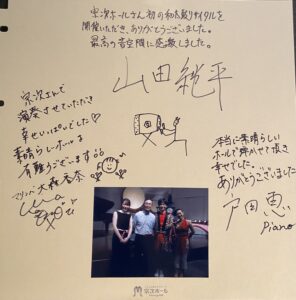 宗次ホールさん初の和太鼓リサイタルを
開催いただき、ありがとうございました。
最高の音空間に感激しました。
山田純平
宗次さんで
演奏させていただき
幸せいっぱいでした♡
素晴らしいホールを
有難うございます
マリンバ 大森香奈
本当に素晴らしい
ホールで弾かせて頂き
幸せでした。
ありがとうございました
戸田恵
Piano
宗次ホール